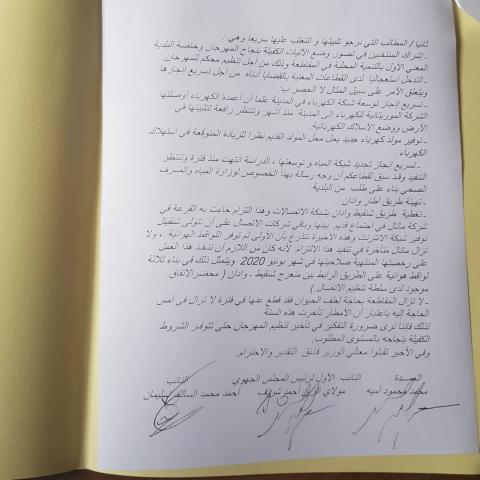 ثانيا / المطالب التي نرجو تلبيتها و التغلب عليها سريعا وهي :
- إشراك المنتخبين في تصور وضع الآليات الكفيلة بنجاح المهرجان وخاصة البلدية
المعني الأول بالتنمية المحلية في المقاطعة وذلك من أجل تنظيم محكم للمهرجان.
- التدخل استعجاليا لدى القطاعات المعنية بالقضايا أدناه من أجل تسريع إنجازها
ويتعلق الأمر على سبيل المثال لا الحصر ب:
- تسريع إنجاز توسعة شبكة الكهرباء في المدينة علما أن أعمدة الكهرباء أوصلتها
الشركة الموريتانية للكهرباء إلى المدينة منذ أشهر وتنتظر رافعة لتثبيتها في
الأرض ووضع الأسلاك الكهربائية.
- توفير مولد كهرباء جديد يحل محل المولد القديم نظرا للزيادة المتوقعة في استهلاك
الكهرباء.
- تسريع إنجاز تجديد شبكة المياه و توسعتها ، الدراسة انتهت منذ فترة وتنتظر
التنفيذ وقد سبق لقطاعكم أن وجه رسالة بهذا الخصوص لوزارة المياه والصرف
الصحي بناء على طلب من البلدية.
- تهيئة طريق أطار وادان
- تغطية طريق شنقيط وادان بشبكة الاتصالات وهذا التزام جاءت به القرعة في
شركة ماتال في اجتماع قديم بينها وباقي شركات الاتصال على أن تتولى شنقيتل
توفير شبكة الانترنت وهذه الأخيرة تتذرع بأن الأولى لم توفر اللواقط الهوائية ، ولا
تزال ماتال متأخرة في تنفيذ هذا الالتزام لأنه كان من اللازم أن تنفذ هذا العمل
على رخصتها المنتهية صلاحيتها في شهر يونيو 2020 ويتمثل ذلك في بناء ثلاثة
لواقط هوائية على الطريق الرابط بين منعرج شنقيط - وادان ( محضر الاتفاق
موجود لدى سلطة تنظيم الاتصال )
- لا تزال المقاطعة بحاجة لعلف الحيوان فقد قطع عنها في فترة لا تزال في أمس
الحاجة إليه باعتبار أن الأمطار تأخرت هذه السنة.
لذلك فإننا نرى ضرورة التفكير في تأخير تنظيم المهرجان حتى تتوفر الشروط
الكفيلة بنجاحه بالمستوى المطلوب.
وفي الأخير تقبلوا معالي الوزير فائق التقدير والاحترام.
العمدة النائب الأول لرئيس المجلس الجهوي النائب
محمد محمود أميه مولاي أحمد شريف أحمد محمد السالك سليمان